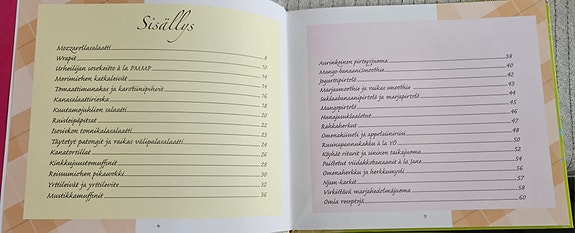 Sisällys
Mozzarellasalaatti
Wrapit 8
Urheilijan sosekeitto à la PMMP 10
Merimiehen katkaleivät 14
Tomaattimunakas ja karottinipihvit 16
Kanasalaattirieska 16
Kuutamojuhlien salaatti 18
Ruisleipäpitsat 20
Isosiskon tonnikalasalaatti 22
Täytetyt patongit ja raikas välipalasalaatti 23
Kanatortillat 24
Kinkkujuustomuffinit 26
Reissumiehen pikawokki 28
Yrttileivät ja yrttilevite 30
Mustikkamuffinit 32
36
4
Aurinkoinen pirteysjuoma 38
Mango-banaanismoothie 40
Jogurttipirtelö 42
Marjasmoothie ja raikas smoothie 43
Suklaabanaanipirtelö ja marjapirtelö 44
Mangopirtelö 45
Hanajasuklaalotus 46
Rahkaherkut 47
Omenakiuseli ja appelsiiniriisi 48
Rusinapannukakku à la YÖ 50
Köyhät ritarit ja sininen taikajuoma 52
Paistetut viidakkobanaanit à la Jane 54
Omenaherkku ja herkkumysli 56
Njam-karkit 57
Virkistävä marjahedelmäjuoma 58
Omia reseptejä 60
5